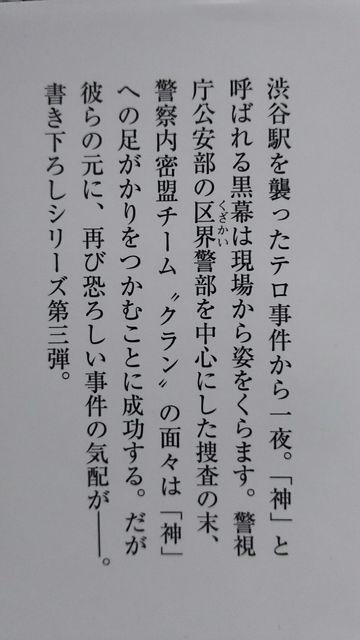 渋谷駅を襲ったテロ事件から一夜。「神」と
呼ばれる黒幕は現場から姿をくらます。警視
庁公安部の区界警部を中心にした捜査の末、
くざかい
警察内密盟チーム〝クラン〟の面々は「神」
への足がかりをつかむことに成功する。だが
彼らの元に、再び恐ろしい事件の気配が――。
書き下ろしシリーズ第三弾。